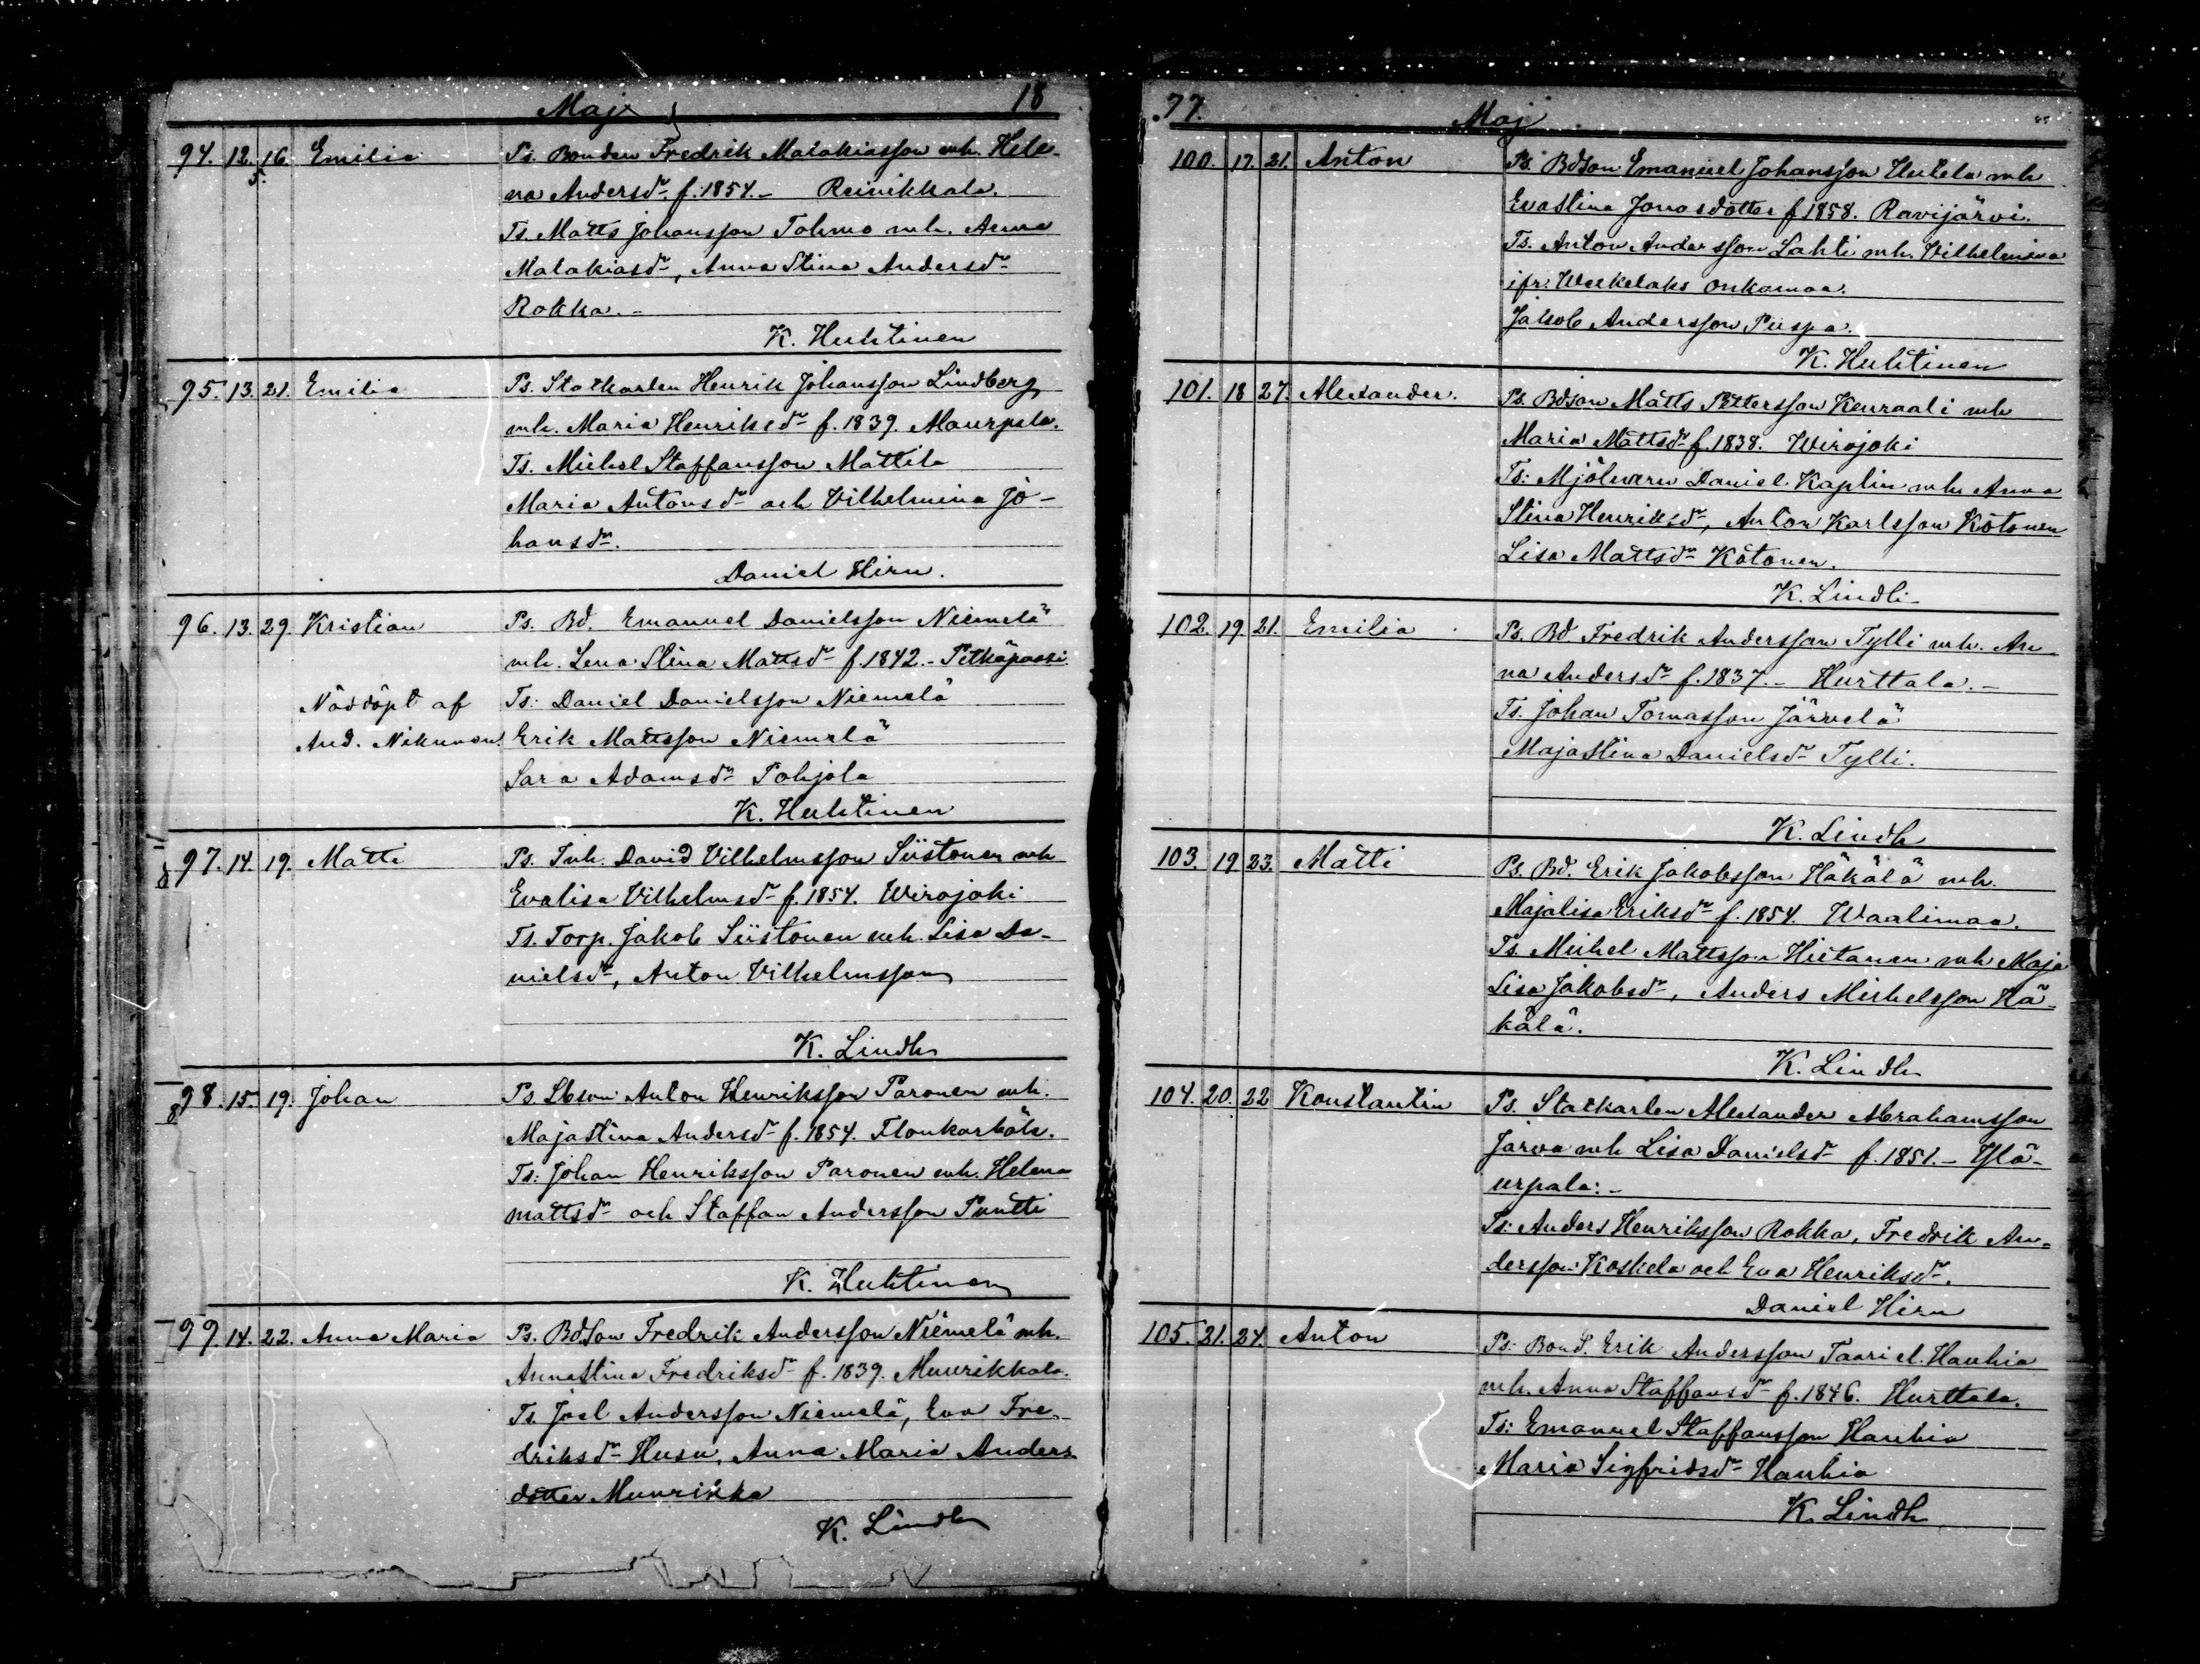 Maj 18
94. 12. 16. Emilia Ps. Bonden Fredrik Malakiasson mh. Hele-
5.
na Andersdr f. 1854.- Reinikkala.
Ts. Matts Johansson Tohmo mh. Anna
Malakiasdr, Anna Stina Andersdr
Rokka.-
K. Huhtinen
95. 13. 21. Emilia Ps. Statkarlen Henrik Johansson Lindberg
mh. Maria Henriksdr f. 1839. Maurpala.
Ts. Michel Staffansson Mattila
Maria Antonsdr och Vilhelmina Jo-
hansdr.
Daniel Hirn.
96. 13. 29. Kristian Ps. Bd. Emanuel Danielsson Niemelä
mh. Lena Stina Mattsdr f. 1842.- Pitkäpaasi
Nöddöpt af Ts: Daniel Danielsson Niemelä
And. Nikunen. Erik Mattsson Niemelä
Sara Adamsdr Pohjola
K. Huhtinen
97. 14. 19. Matti Ps. Inh. David Vilhelmsson Siistonen mh
Evalisa Vilhelmsdr f. 1854. Wirojoki
Ts. Torp. Jakob Siistonen mh. Lisa Da-
nielsdr, Anton Vilhelmsson
K. Lindh
98. 15. 19. Johan Ps. Anton Henriksson Paronen mh.
8
Majastina Andersdr f. 1854.
Ts: Johan Henriksson Paronen mh. Helena
mattsdr och Staffan Andersson Puntti
K. Huhtinen
99. 14. 22. Anna Maria Ps. Bdson Fredrik Andersson Niemelä mh.
Annastina Fredriksdr f. 1839. Muurikkala.
Ts. Joel Andersson Niemelä, Eva Fre-
driksdr Husu, Anna Maria Anders
dotter Muurikka
K. Lindh
77. Maj
100. 17. 21. Anton Ps. Bdson Emanuel Johansson Hutela mh
Evastina Jonasdotter f 1858. Ravijärvi.
Ts. Anton Andersson Lahti mh. Vilhelmina
ifr. Weckelaks Onkamaa.
Jakob Andersson Piispa.
K. Huhtinen
101. 18 27. Alexander. Ps. Bdson Matts Pettersson Kenraali mh
Maria Mattsdr f. 1838. Wirojoki
Ts: Mjölnaren Daniel Kaplin mh Anna
Stina Henriksdr, Anton Karlsson Kotonen
Lisa Mattsdr Kotonen.
K. Lindh
102. 19. 21. Emilia Ps. Bd Fredrik Andersson Tylli mh. An-
na Andersdr f. 1837.- Hurttala.-
Ts. Johan Tomasson Järvelä
Majastina Danielsdr Tylli.
K. Lindh
103. 19 23. Matti Ps. Bd. Erik Jakobsson Häkälä mh.
Majalisa Eriksdr f. 1854. Waalimaa.
Ts. Michel Mattsson Hietanen mh Maja
Lisa Jakobsdr, Anders Michelsson Hä-
kälä.
K. Lindh
104. 20. 22 Konstantin Ps. Statkarlen Alexander Abrahamsson
Jarva mh Lisa Danielsdr f. 1851.- Ylä-
urpala:-
Ts: Anders Henriksson Rokka, Fredrik An-
dersson Koskela och Eva Henriksdr.
Daniel Hirn
105. 21. 24. Anton Ps: Bond. Erik Andersson Taari el. Hauhia
mh. Anna Staffansdr f. 1846. Hurttala.
Ts: Emanuel Staffansson Hauhia
Maria Sigfridsdr Hauhia
K. Lindh